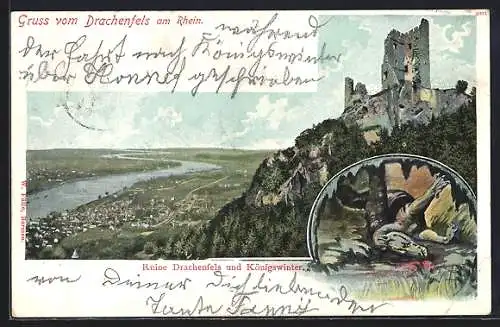 Gruss vom Drachenfels am Rhein.
während
der Fahrt nach Königswinter
über Honnef geschrieben
Ruine Drachenfels und Königswinter.
von Deiner Dich liebenden
Tante Fanny